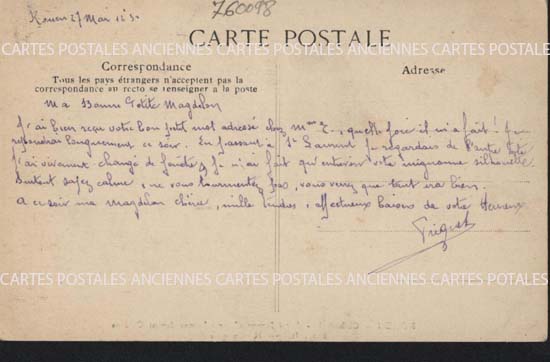 Rouen 27 Mai 12 h 30
760098
CARTE POSTALE
Correspondance
Tous les pays étrangers n'acceptent pas la
correspondance au recto se renseigner à la poste
Adresse
Ma Bonne Petite Magdelon
J'ai bien reçu votre bon petit mot adressé chez Mme, quelle joie il m'a fait!
longuement ce soir. En passant à St Laurent je regardais de l'autre
j'ai vivement changé de fenêtre, je n'ai fait qu'entrevoir votre mignonne silhouette.
Surtout soyez calme, ne vous tourmentez pas, vous verrez que tout ira bien.
A ce soir ma Magdelon chérie, mille tendres, affectueux baisers de votre
CARTES POSTALES ANCIENNES CARTES POSTALES ANCIENNES CARTES POSTALES
CARTES POSTALES ANCIENNES CARTES POSTALES ANCIENNES CARTES POSTALES